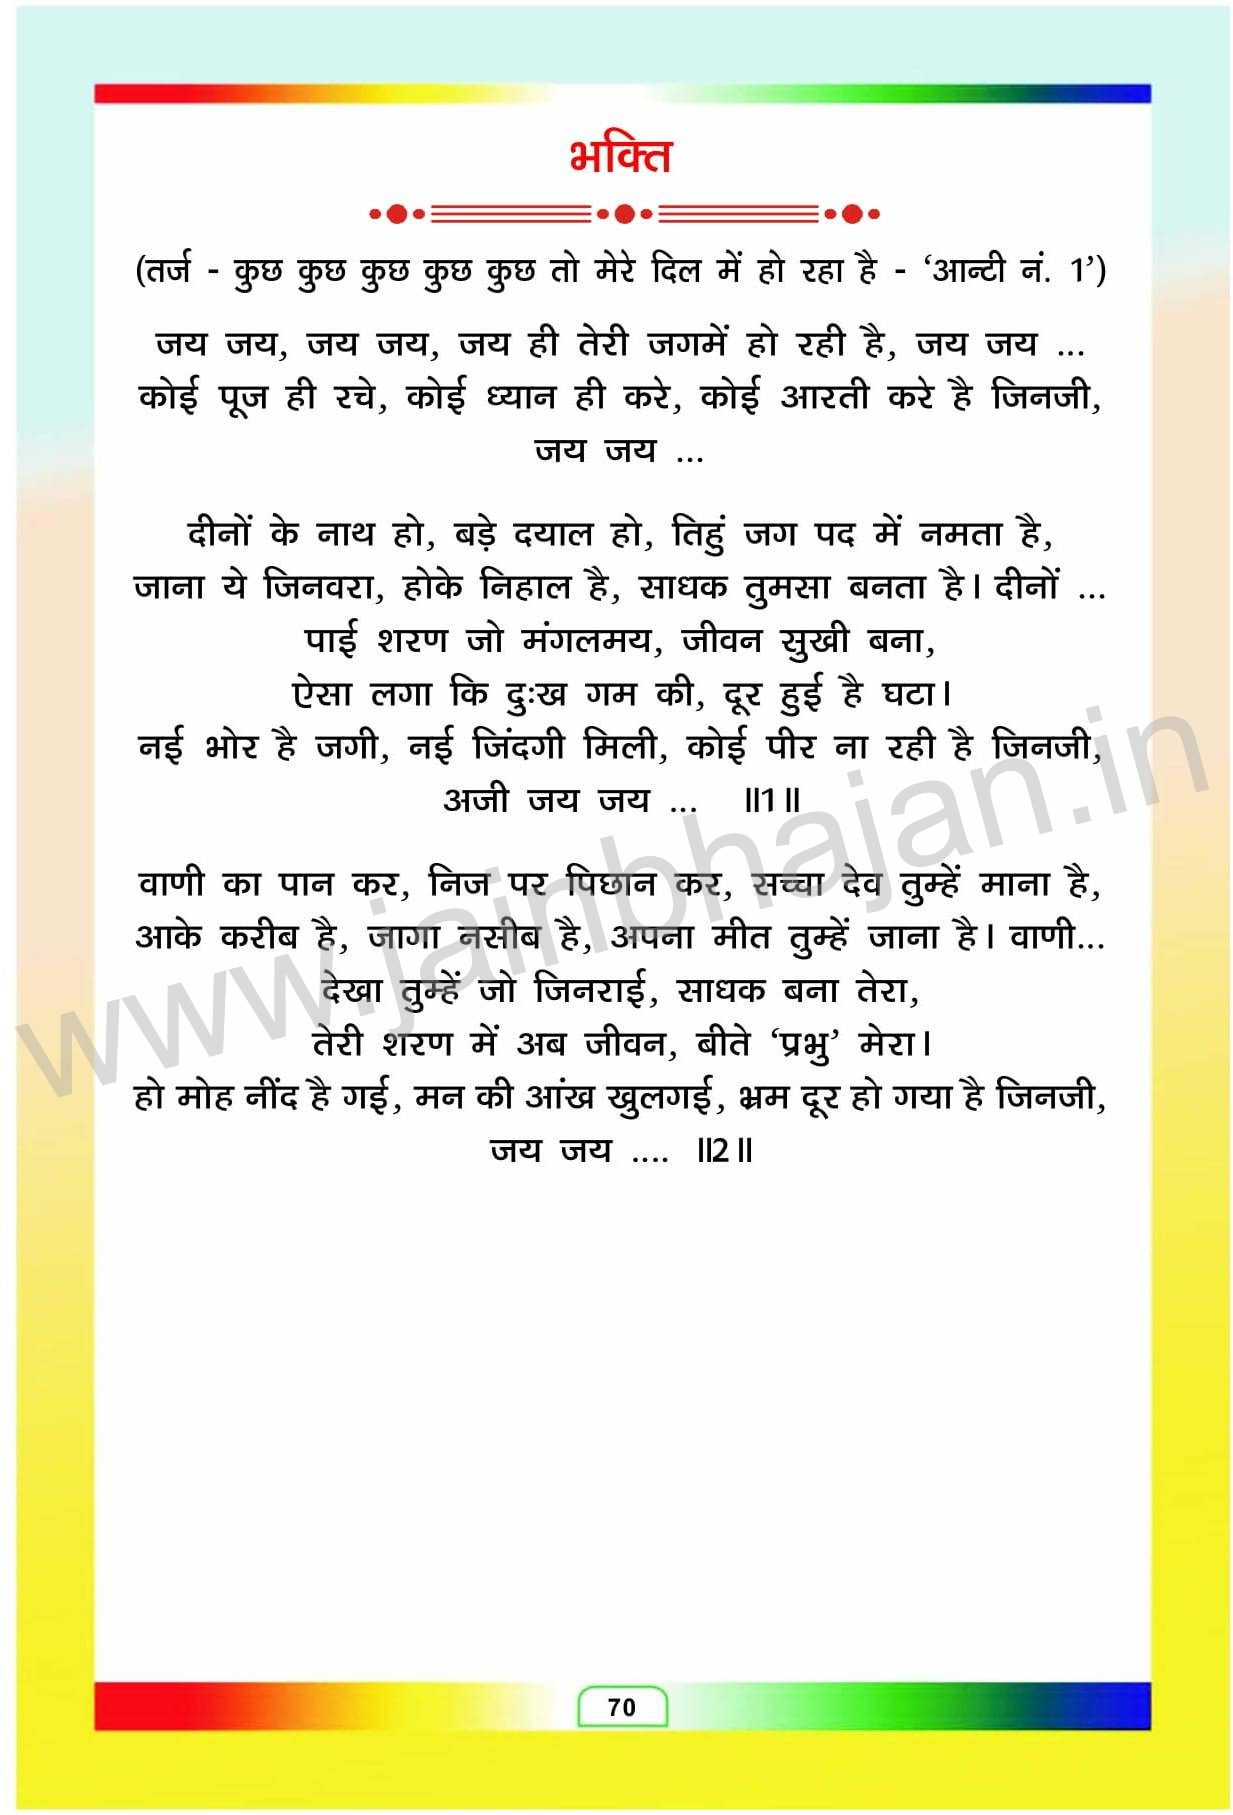 भक्ति
(तर्ज - कुछ कुछ कुछ कुछ कुछ तो मेरे दिल में हो रहा है - ‘आन्टी नं. 1’)
जय जय, जय जय, जय ही तेरी जगमें हो रही है, जय जय ...
कोई पूज ही रचे, कोई ध्यान ही करे, कोई आरती करे है जिनजी,
जय जय ...
दीनों के नाथ हो, बड़े दयाल हो, तिहुं जग पद में नमता है,
जाना ये जिनवरा, होके निहाल है, साधक तुमसा बनता है। दीनों ...
पाई शरण जो मंगलमय, जीवन सुखी बना,
ऐसा लगा कि दुःख गम की, दूर हुई है घटा।
नई भोर है जगी, नई जिंदगी मिली, कोई पीर ना रही है जिनजी,
अजी जय जय ... ॥1॥
वाणी का पान कर, निज पर पिछान कर, सच्चा देव तुम्हें माना है,
आके करीब है, जागा नसीब है, अपना मीत तुम्हें जाना है। वाणी...
देखा तुम्हें जो जिनराई, साधक बना तेरा,
तेरी शरण में अब जीवन, बीते ‘प्रभु’ मेरा।
हो मोह नींद है गई, मन की आंख खुलगई, भ्रम दूर हो गया है जिनजी,
जय जय .... ॥2॥
www.jainbhajan.in
70